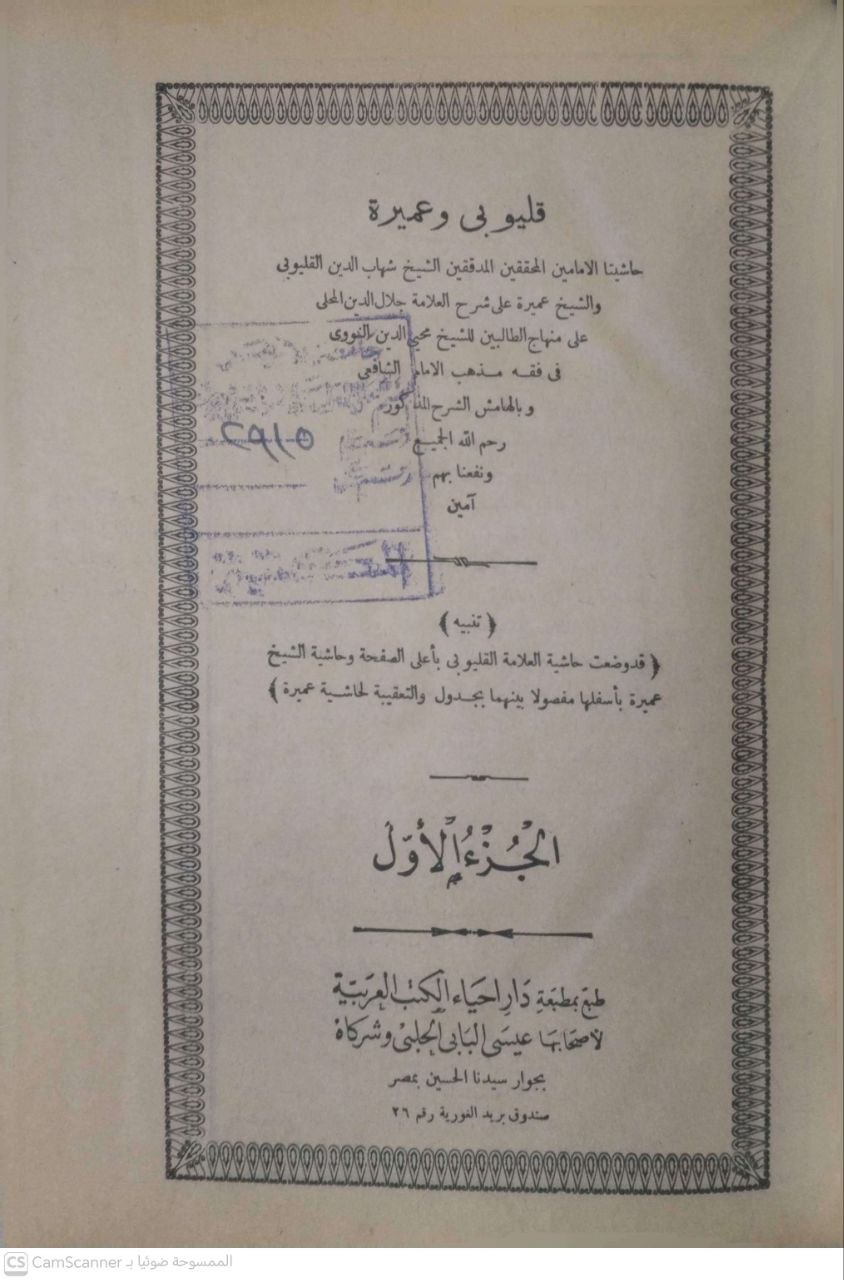 قليوبى وعميرة
حاشيتا الامامين المحققين المدققين الشيخ شهاب الدين القليوبى
والشيخ عميرة على شرح العلامة جلال الدين المحلى
على منهاج الطالبين للشيخ محيى الدين النووى
فى فقه مذهب الامام الشافعى
وبالهامش الشرح المذكور
رحم الله الجميع
ونفعنا بهم
آمين
٥١٩٢
﴿ تنبيه ﴾
﴿ قد وضعت حاشية العلامة القليوبى بأعلى الصفحة وحاشية الشيخ
عميرة بأسفلها مفصولا بينهما بجدول والتعقيبة لحاشية عميرة ﴾
الجُزْءُ الأوّل
طبع بمطبعة دار احياء الكتب العربية
لأصحابها عيسى البابى الحلبى وشركاه
بجوار سيدنا الحسين بمصر
صندوق بريد الغورية رقم ٢٦
CS CamScanner الممسوحة ضوئيا بـ